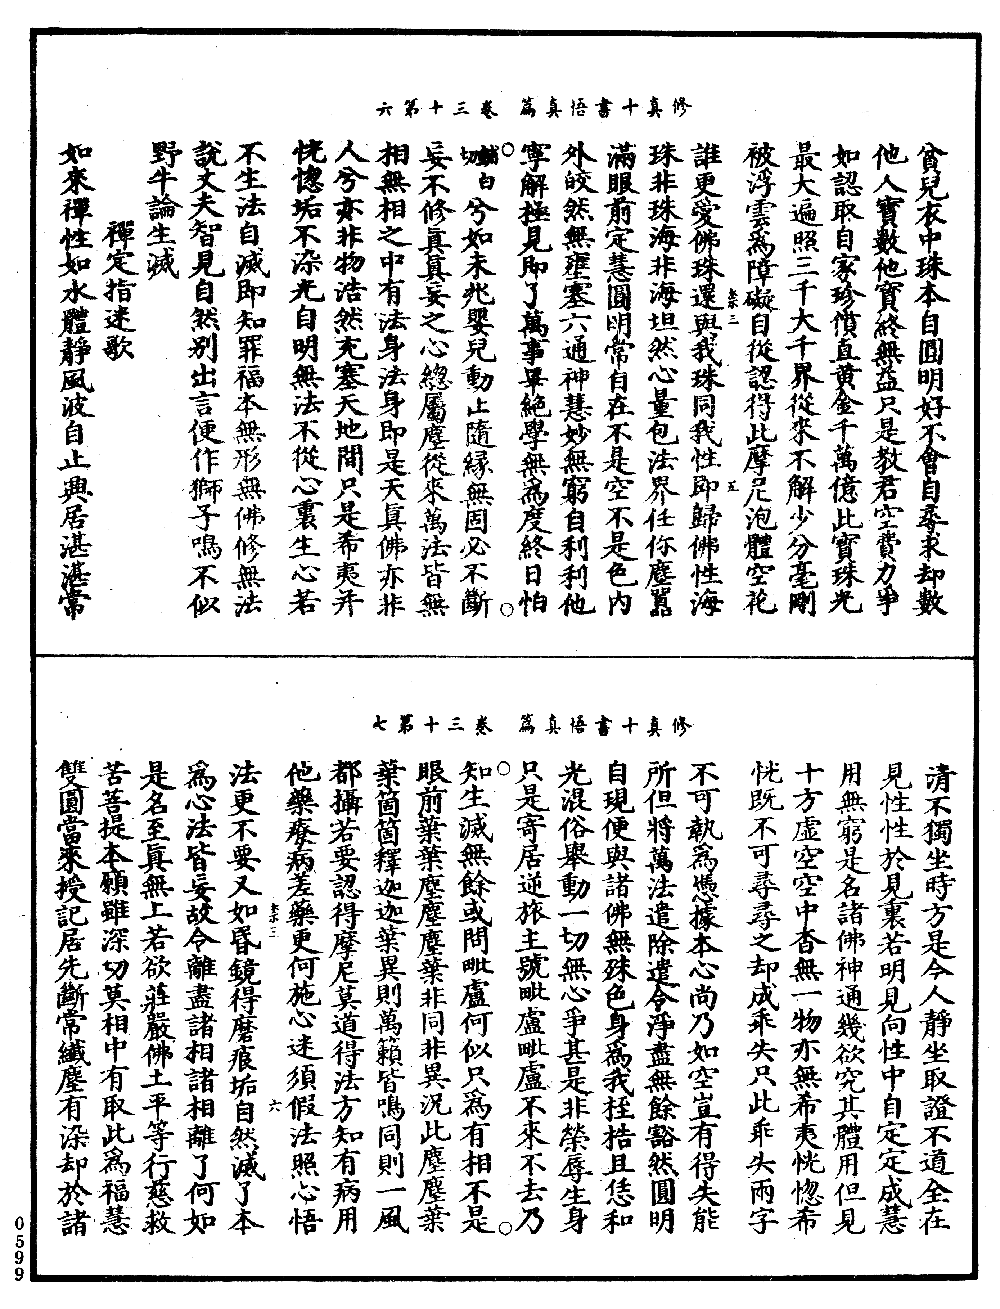 修真十書悟真篇　卷三十第六
貧兒衣中珠本自圓明好不會自尋求却數
他人寶數他寶終無益只是教君空費力爭
如認取自家珍價直黄金千萬億此寶珠光
最大遍照三千大千界從來不解少分毫剛
被浮雲爲障礙自從認得此摩尼泡體空花
誰更愛佛珠還與我珠同我性即歸佛性海
珠非珠海非海坦然心量包法界任你塵囂
滿眼前定慧圓明常自在不是空不是色内
外皎然無壅塞六通神慧妙無窮自利利他
寧解極見即了萬事畢絕學無爲度終日怕
兮如未兆嬰兒動止隨緣無固必不斷
妄不修真真妄之心總屬塵從來萬法皆無
相無相之中有法身法身即是天真佛亦非
人兮亦非物浩然充塞天地間只是希夷并
恍惚垢不染光自明無法不從心裏生心若
不生法自滅即知罪福本無形無佛修無法
說丈夫智見自然别出言便作獅子鳴不似
野牛論生滅
禪定指迷歌
如來禪性如水體靜風波自止興居湛湛常
修真十書悟真篇　卷三十第七
清不獨坐時方是今人靜坐取證不道全在
見性性於見裏若明見向性中自定定成慧
用無窮是名諸佛神通幾欲究其體用但見
十方虛空空中杳無一物亦無希夷恍惚希
恍既不可尋尋之却成乖失只此乖失兩字
不可執爲憑據本心尚乃如空豈有得失能
所但將萬法遣除遣令淨盡無餘豁然圓明
自現便與諸佛無殊色身爲我桎梏且恁和
光混俗舉動一切無心爭甚是非榮辱生身
只是寄居逆旅主號毗盧毗盧不來不去乃
知生滅無餘或問毗盧何似只爲有相不是
眼前葉葉塵塵塵葉非同非異況此塵塵葉
葉箇箇釋迦迦葉異則萬籟皆鳴同則一風
都攝若要認得摩尼莫道得法方知有病用
他藥療病差藥更何施心迷須假法照心悟
法更不要又如昏鏡得磨痕垢自然滅了本
爲心法皆妄故令離盡諸相諸相離了何如
是名至真無上若欲莊嚴佛土平等行慈救
苦菩提本願雖深切莫相中有取此爲福慧
雙圓當來授記居先斷常纖塵有染却於諸
0599